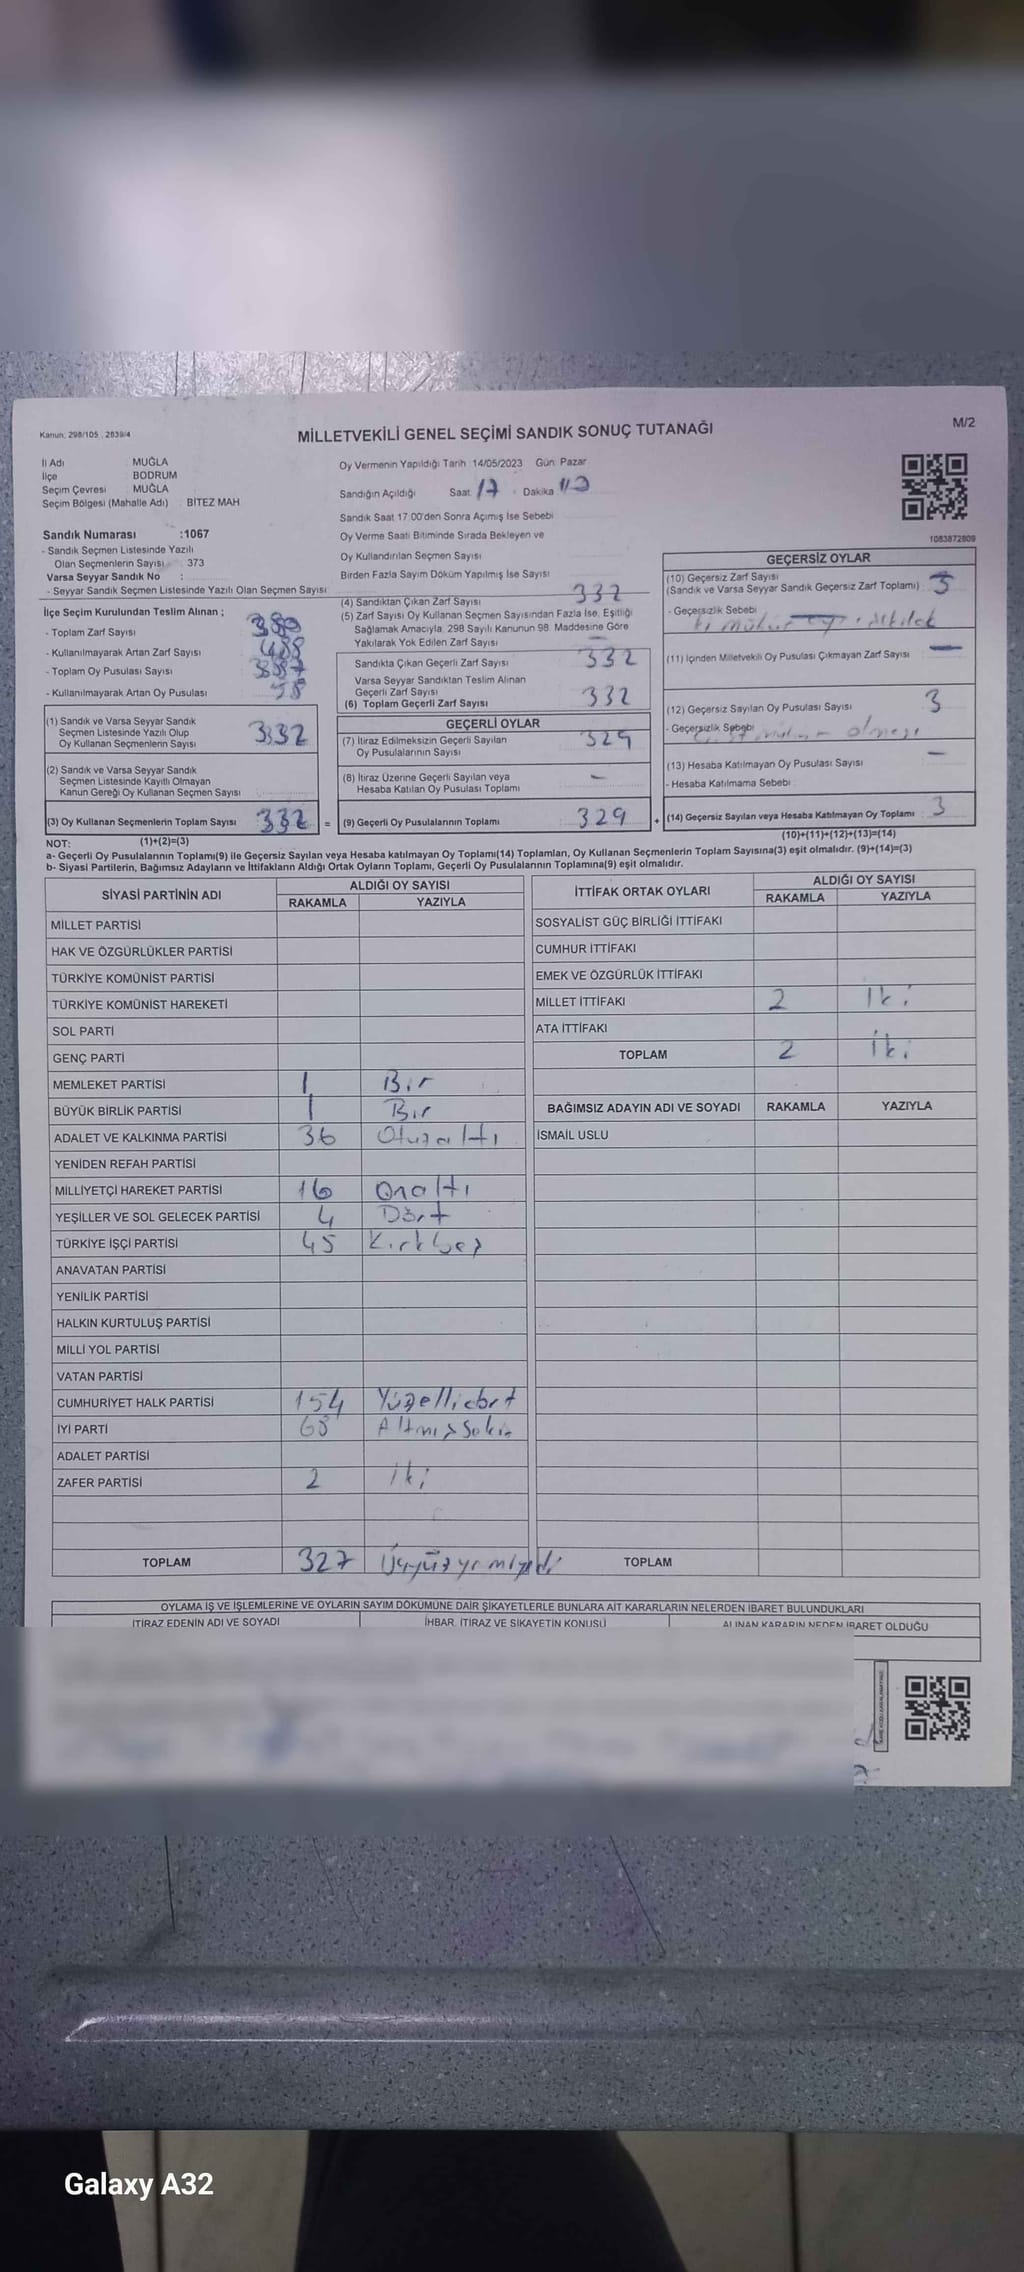 Kanun: 298/105 , 2839/4
MİLLETVEKİLİ GENEL SEÇİMİ SANDIK SONUÇ TUTANAĞI
M/2
İl Adı : MUĞLA
İlçe : BODRUM
Seçim Çevresi : MUĞLA
Seçim Bölgesi (Mahalle Adı) : BİTEZ MAH
Sandık Numarası :1067
- Sandık Seçmen Listesinde Yazılı
Olan Seçmenlerin Sayısı : 373
Varsa Seyyar Sandık No :
- Seyyar Sandık Seçmen Listesinde Yazılı Olan Seçmen Sayısı
Oy Vermenin Yapıldığı Tarih : 14/05/2023 Gün: Pazar
Sandığın Açıldığı Saat 17 : Dakika
Sandık Saat 17:00'den Sonra Açımış İse Sebebi
Oy Verme Saati Bitiminde Sırada Bekleyen ve
Oy Kullandırılan Seçmen Sayısı
Birden Fazla Sayım Döküm Yapılmış İse Sayısı
1083872809
İlçe Seçim Kurulundan Teslim Alınan ;
- Toplam Zarf Sayısı
- Kullanılmayarak Artan Zarf Sayısı
- Toplam Oy Pusulası Sayısı
- Kullanılmayarak Artan Oy Pusulası
(1) Sandık ve Varsa Seyyar Sandık
Seçmen Listesinde Yazılı Olup
Oy Kullanan Seçmenlerin Sayısı 332
(2) Sandık ve Varsa Seyyar Sandık
Seçmen Listesinde Kayıtlı Olmayan
Kanun Gereği Oy Kullanan Seçmen Sayısı
(3) Oy Kullanan Seçmenlerin Toplam Sayısı 332 =
(4) Sandıktan Çıkan Zarf Sayısı 332
(5) Zarf Sayısı Oy Kullanan Seçmen Sayısından Fazla İse, Eşitliği
Sağlamak Amacıyla, 298 Sayılı Kanunun 98. Maddesine Göre
Yakılarak Yok Edilen Zarf Sayısı —
Sandıkta Çıkan Geçerli Zarf Sayısı 332
Varsa Seyyar Sandıktan Teslim Alınan
Geçerli Zarf Sayısı
(6) Toplam Geçerli Zarf Sayısı 332
GEÇERLİ OYLAR
(7) İtiraz Edilmeksizin Geçerli Sayılan
Oy Pusulalarının Sayısı 329
(8) İtiraz Üzerine Geçerli Sayılan veya
Hesaba Katılan Oy Pusulası Toplamı —
(9) Geçerli Oy Pusulalarının Toplamı 329 +
GEÇERSİZ OYLAR
(10) Geçersiz Zarf Sayısı
(Sandık ve Varsa Seyyar Sandık Geçersiz Zarf Toplamı)
- Geçersizlik Sebebi
(11) İçinden Milletvekili Oy Pusulası Çıkmayan Zarf Sayısı —
(12) Geçersiz Sayılan Oy Pusulası Sayısı 3
- Geçersizlik Sebebi
(13) Hesaba Katılmayan Oy Pusulası Sayısı —
- Hesaba Katılmama Sebebi
(14) Geçersiz Sayılan veya Hesaba Katılmayan Oy Toplamı 3
NOT: (1)+(2)=(3) (10)+(11)+(12)+(13)=(14)
a- Geçerli Oy Pusulalarının Toplamı(9) ile Geçersiz Sayılan veya Hesaba katılmayan Oy Toplamı(14) Toplamları, Oy Kullanan Seçmenlerin Toplam Sayısına(3) eşit olmalıdır. (9)+(14)=(3)
b- Siyasi Partilerin, Bağımsız Adayların ve İttifakların Aldığı Ortak Oyların Toplamı, Geçerli Oy Pusulalarının Toplamına(9) eşit olmalıdır.
SİYASİ PARTİNİN ADI ALDIĞI OY SAYISI
RAKAMLA YAZIYLA
MİLLET PARTİSİ
HAK VE ÖZGÜRLÜKLER PARTİSİ
TÜRKİYE KOMÜNİST PARTİSİ
TÜRKİYE KOMÜNİST HAREKETİ
SOL PARTİ
GENÇ PARTİ
MEMLEKET PARTİSİ 1 Bir
BÜYÜK BİRLİK PARTİSİ 1 Bir
ADALET VE KALKINMA PARTİSİ 36 Otuzaltı
YENİDEN REFAH PARTİSİ
MİLLİYETÇİ HAREKET PARTİSİ 16 Onaltı
YEŞİLLER VE SOL GELECEK PARTİSİ 4 Dört
TÜRKİYE İŞÇİ PARTİSİ 45 Kırkbeş
ANAVATAN PARTİSİ
YENİLİK PARTİSİ
HALKIN KURTULUŞ PARTİSİ
MİLLİ YOL PARTİSİ
VATAN PARTİSİ
CUMHURİYET HALK PARTİSİ 154 Yüzellidört
İYİ PARTİ 68 Altmışsekiz
ADALET PARTİSİ
ZAFER PARTİSİ 2 iki
TOPLAM 327 Üçyüzyirmiyedi
İTTİFAK ORTAK OYLARI ALDIĞI OY SAYISI
RAKAMLA YAZIYLA
SOSYALİST GÜÇ BİRLİĞİ İTTİFAKI
CUMHUR İTTİFAKI
EMEK VE ÖZGÜRLÜK İTTİFAKI
MİLLET İTTİFAKI 2 İki
ATA İTTİFAKI
TOPLAM 2 İki
BAĞIMSIZ ADAYIN ADI VE SOYADI RAKAMLA YAZIYLA
İSMAİL USLU
TOPLAM
OYLAMA İŞ VE İŞLEMLERİNE VE OYLARIN SAYIM DÖKÜMÜNE DAİR ŞİKAYETLERLE BUNLARA AİT KARARLARIN NELERDEN İBARET BULUNDUKLARI
İTİRAZ EDENİN ADI VE SOYADI İHBAR, İTİRAZ VE ŞİKAYETİN KONUSU ALINAN KARARIN NEDEN İBARET OLDUĞU
Galaxy A32